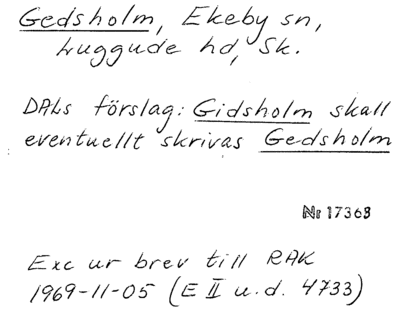 Gedsholm, Ekeby sn,
Luggude hd, Sk.
DALs förslag: Gidsholm skall
eventuellt skrivas Gedsholm
Nr 17368
Exc ur brev till RAK
1969-11-05 (E II u.d. 4733)